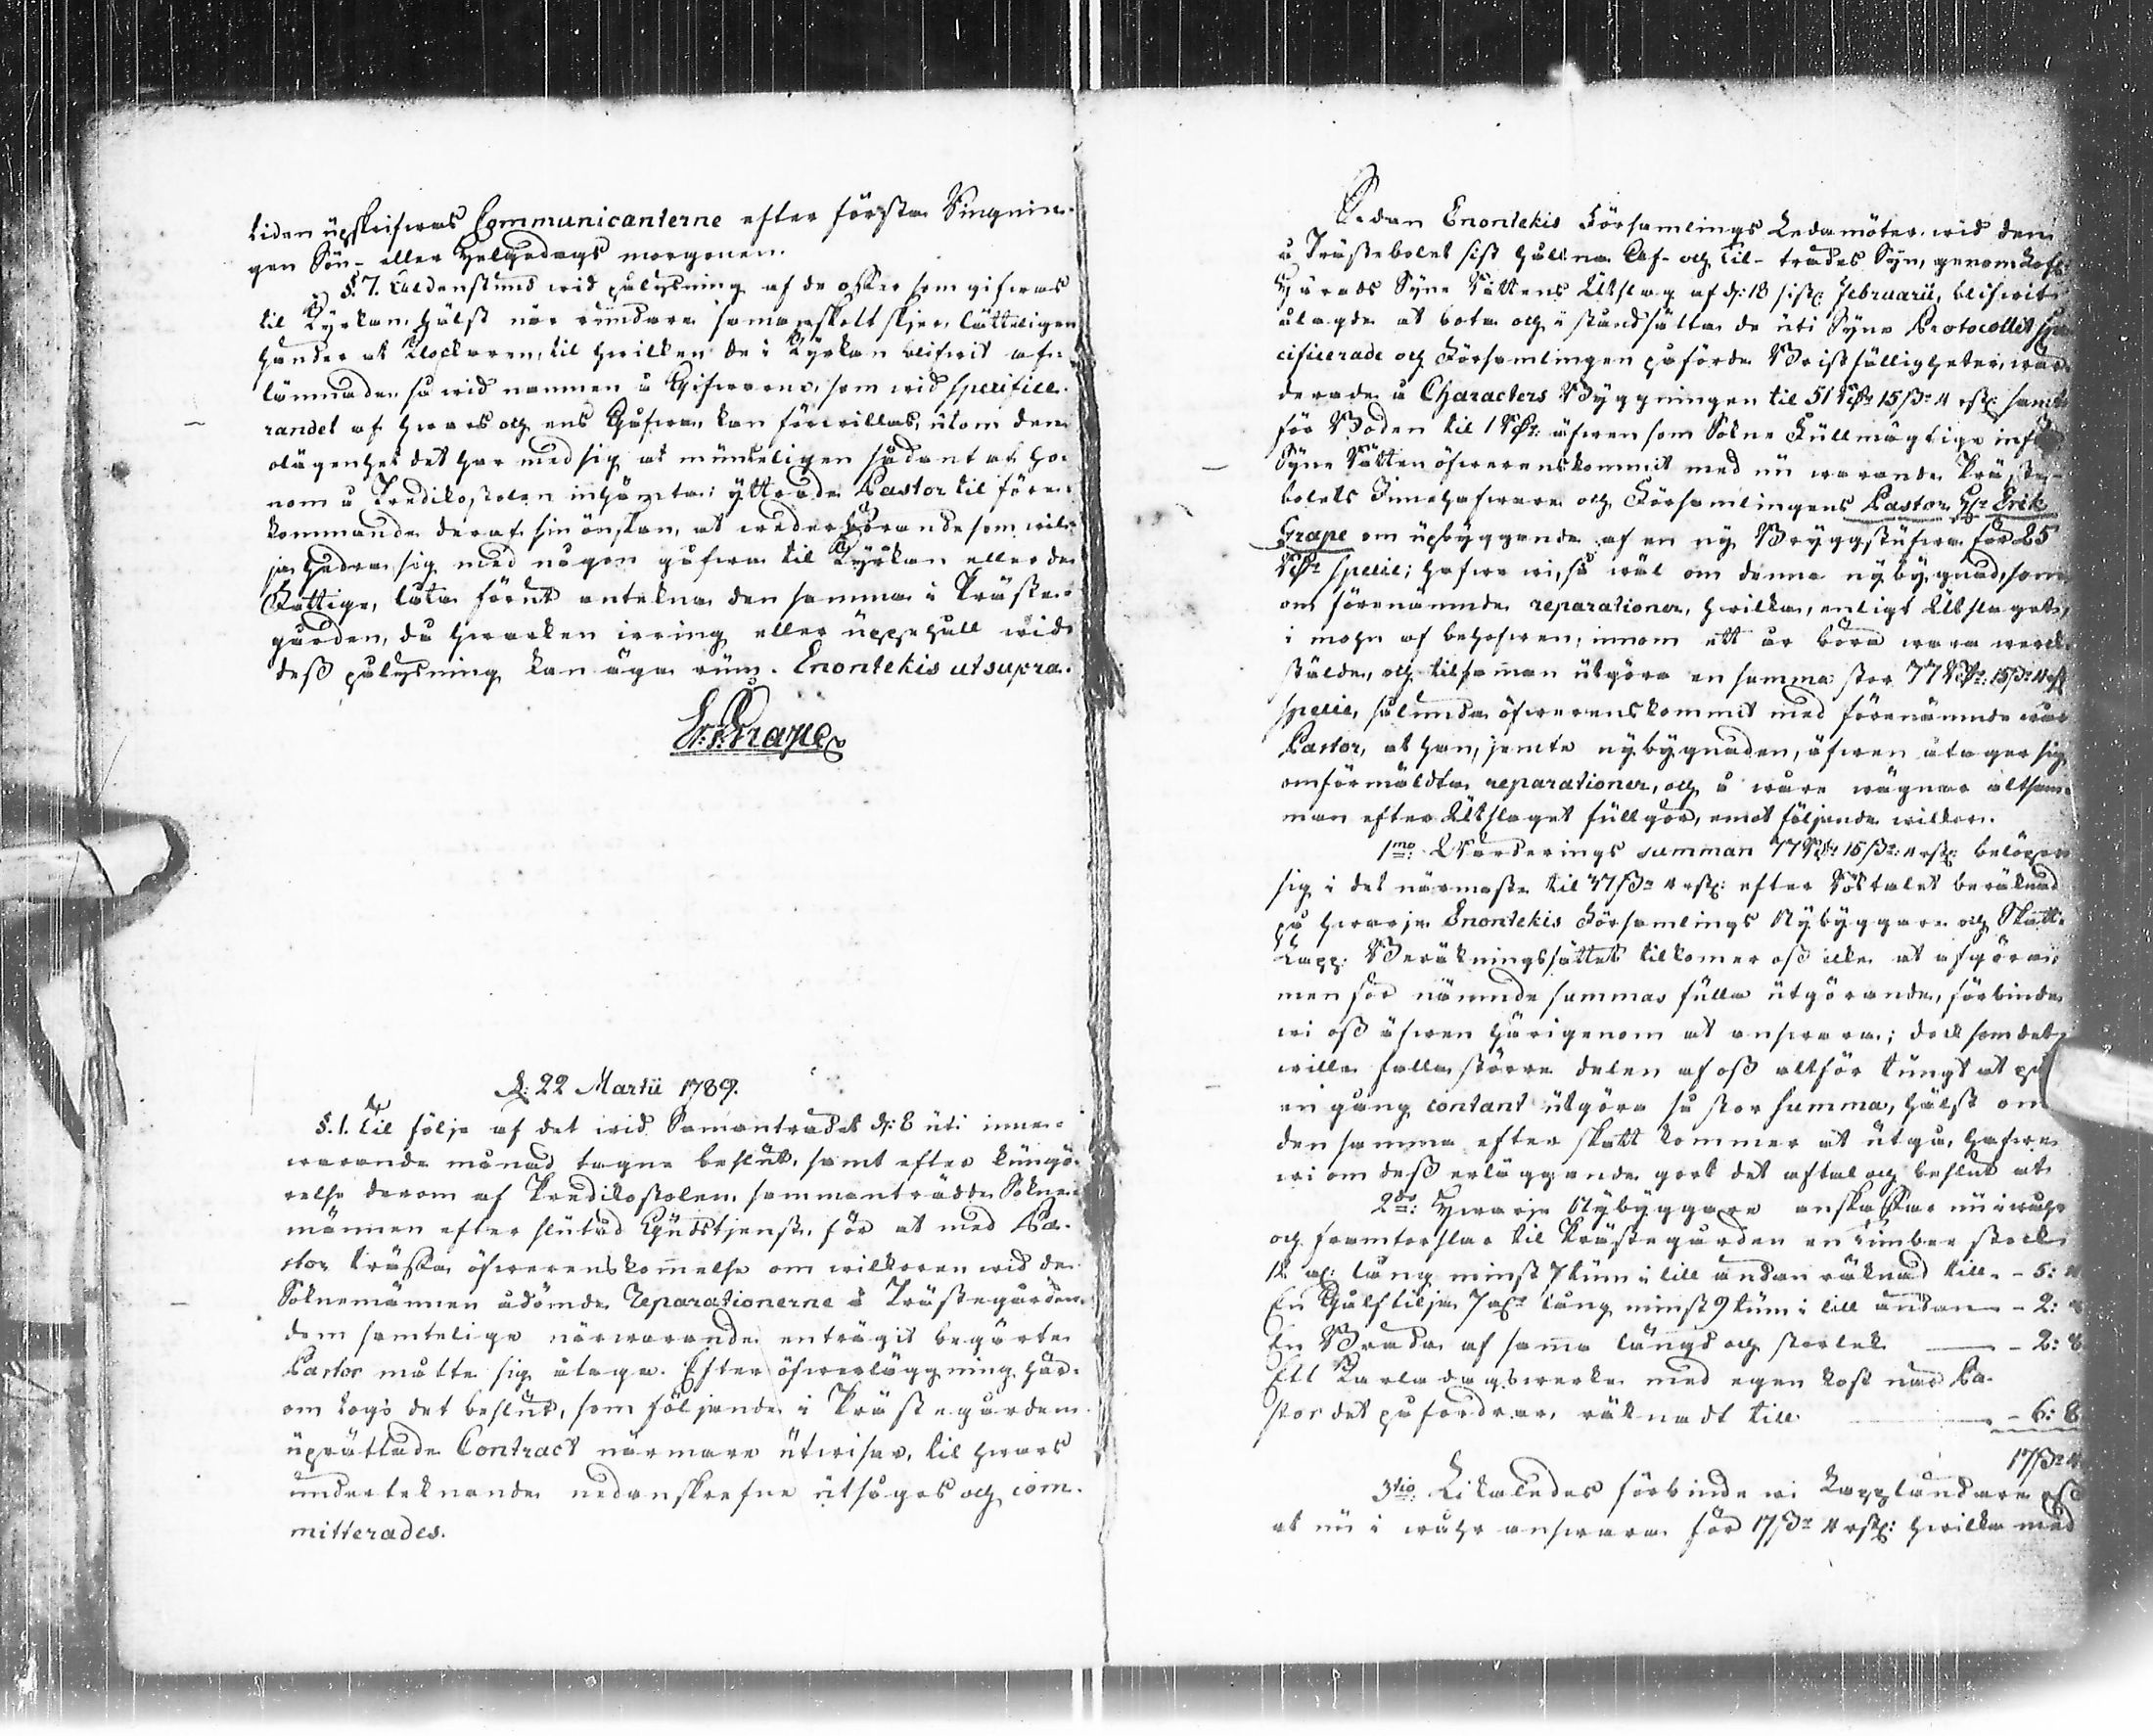 tiden upskrifwas Communicanterne efter första Ringnin-
gen Sön- eller Helgedags morgonen.
§. 7. Aldenstund wid pålysning af de offer som gifwas
til Kyrkan, hälst när rundare samanskott skjer, lätteligen
händer at Klockaren, til hwilken de i Kyrkan blifwit af-
lämnade, så wid namnen å Gifwarne, som wid specifice-
randet af hwars och ens Gåfwa kan förwillas, utom den
olägenhet det har med sig at munteligen sådant af ho-
nom å Predikostolen inhämta: yttrade Pastor til före-
kommande deraf sin önskan, at wederbörande som wil-
ja hedra sig med någon gåfwa til Kyrkan eller de
Fattige, låta förut antekna den samma i Präste-
gården, då hwarken irring eller uppehåll wid
dess pålysning kan äga rum. Enontekis ut supra.
E. Grape
D: 22 Martii 1789.
§. 1. Til följe af det wid Samanträdet d: 8 uti inne-
warande månad tagne beslut, samt efter kungö-
relse derom af Predikostolen, sammanträdde Sokne-
männen efter slutad Gudstjenst, för at med Pa-
stor träffa öfwerenskommelse om wilkoren wid de
Soknemännen ådömde Reparationerne å Prästegården
dem samtelige närwarande enträgit begärte
Pastor måtte sig åtaga. Efter öfwerläggning här-
om togs det beslut, som följande i Prästegården
uprättade Contract närmare utwisar, til hwars
undertecknande nedanskrefne utsågos och com-
mitterades.
Sedan Enontekis Församlings Ledamöter wid den
å Prästebolet sist hållna Af- och Til- trädes Syn, genom Lofl.
Härads Syne Rättens Utslag af d: 18 sistl. Februarii, blifwit
ålagde at bota och i ståndsätta de uti Syne Protocollet spe-
cificerade och Församlingen påförde Bristfälligheter, wär-
derade å Characters Byggningen til 51 Rdr 15 sz 4 rst: samt
för Boden til 1 Rdr: äfwen som Sokne Fullmägtige inför
Syne Rätten öfwerenskommit med nu warande Präste-
bolets Innehafware och Församlingens Pastor Hr Erik
Grape om upbyggande af en ny Bryggstufwa för 25
Rdr specie; hafwe wi, så wäl om denne nybygnad, som
om förenämnde reparationer, hwilka, enligt Utslaget,
i mohn af behofwen, innom ett år böra wara werk-
stälde, och tilsamman utgöra en summa stor 77 Rdr: 15 sz 4 rst
specie, sålunda öfwerenskommit med förenämnde wår
Pastor, at han, jemte nybygnaden, äfwen åtager sig
omförmäldta reparationer, och å wåre wägnar altsam-
man efter Utslaget fullgör, emot följande wilkor.
1mo: Wärderings summan 77 Rdr 15 sz: 4 rst: belöper
sig i det närmaste til 37 sz 4 rst: efter Röktalet beräknad
på hwarje Enontekis Församlings Nybyggare och Skatt-
Lapp. Beräkningssättet tilkommer oss icke at afgöra;
men för nämnde summas fulla utgörande, förbinde
wi oss äfwen härigenom at answara; dock som det
wille falla större delen af oss altför tungt at på
en gång contant utgöra så stor summa, hälst om
den samma efter skatt kommer at utgå, hafwe
wi om dess erläggande gort det aftal och beslut at
2do: Hwarje Nybyggare anskaffar nu i wåhr
och framforslar til Prästegården en timber stock
12 al: lång minst 7 tum i lill ändan räknad till. - 5: 4
En Gålftilja 7 al: lång minst 9 tum i lill ändan - 2:
En Bräda af samma längd och storlek - 2: 8
Ett Karla dagswerke med egen kost när Pa-
stor det påfordrar, räknadt till - 6: 8
17 sz 4
3tio: Likaledes förbinde wi Lappländare oss
at nu i wåhr answara för 17 sz 4 rst: hwilka med